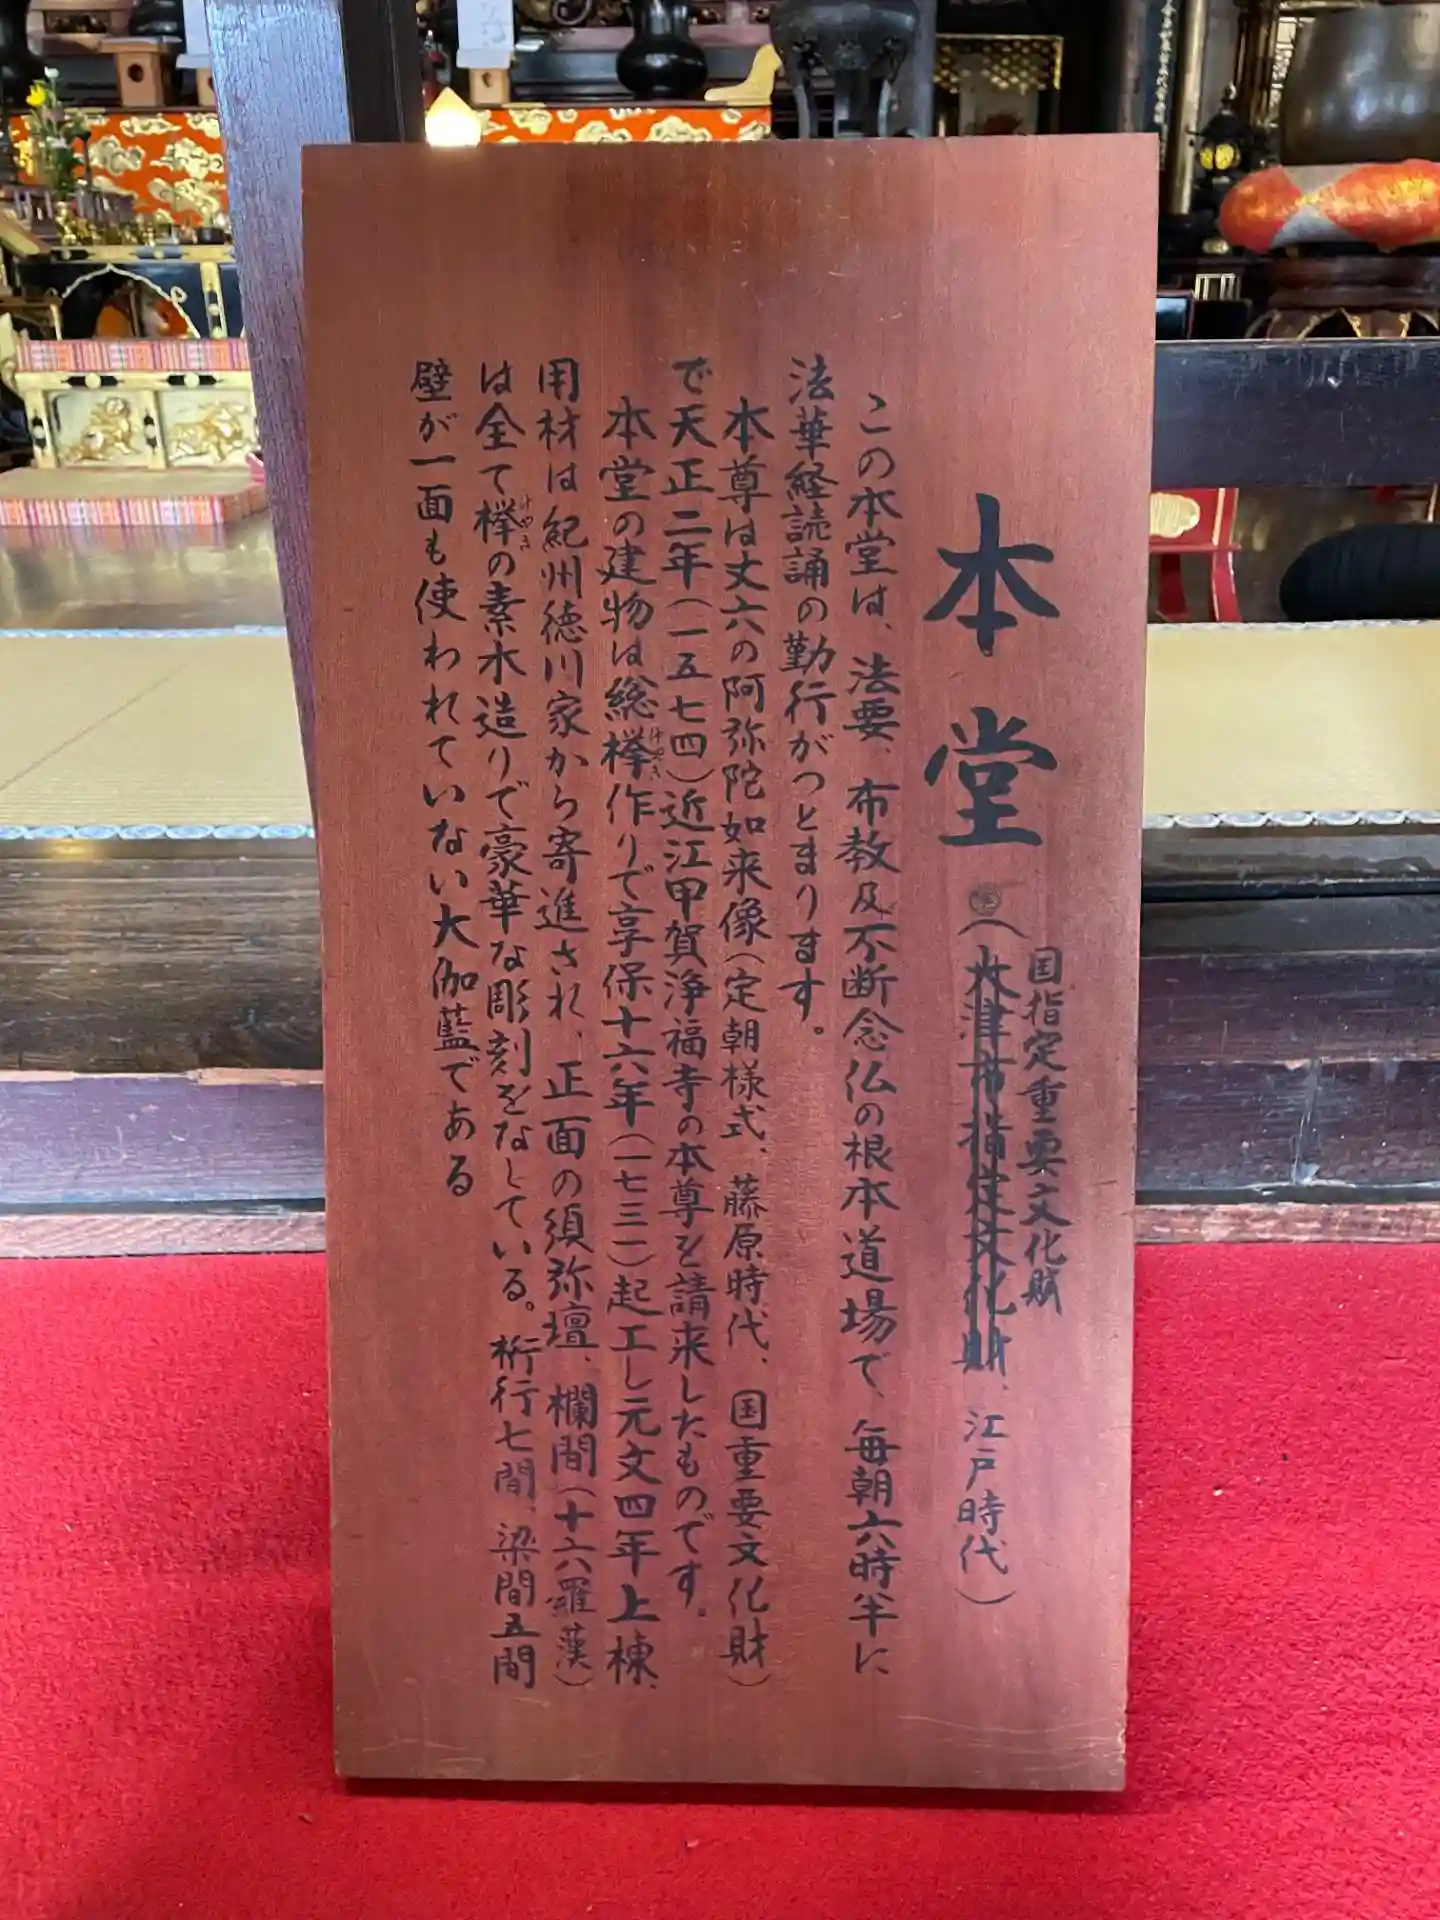 本堂
国指定重要文化財
(大津市指定文化財、江戸時代)
この本堂は、法要、布教及不断念仏の根本道場で、毎朝六時半に
法華経読誦の勤行がつとまります。
本尊は丈六の阿弥陀如来像(定朝様式、藤原時代、国重要文化財)
で天正二年(一五七四)近江甲賀浄福寺の本尊を請来したものです。
本堂の建物は総欅作りで享保十六年(一七三一)起工し元文四年上棟、
けやき
用材は紀州徳川家から寄進され、正面の須弥壇、欄間(十六羅漢)
は全て欅の素木造りで豪華な彫刻をなしている。桁行七間、梁間五間
けやき
壁が一面も使われていない大伽藍である